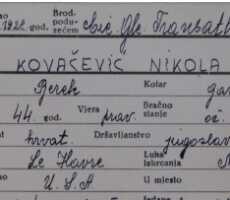 1928. god. Brod. podu- zećem Cie. Gle. Transatl
KOVAČEVIC NIKOLA
Berek Kotar gar
44. god. Vjera prav. Bračno stanje ož.
hrvat. Državljanstvo jugoslav
Le Havre Luka iskrcanja N
U.S.A U mjesto